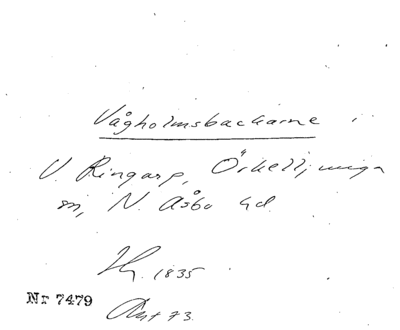 Vågholmsbackarne
V. Ringarp, Örkelljunga
sn, N. Åsbo hd
Hy. 1835
Nr 7479
Akt 73.